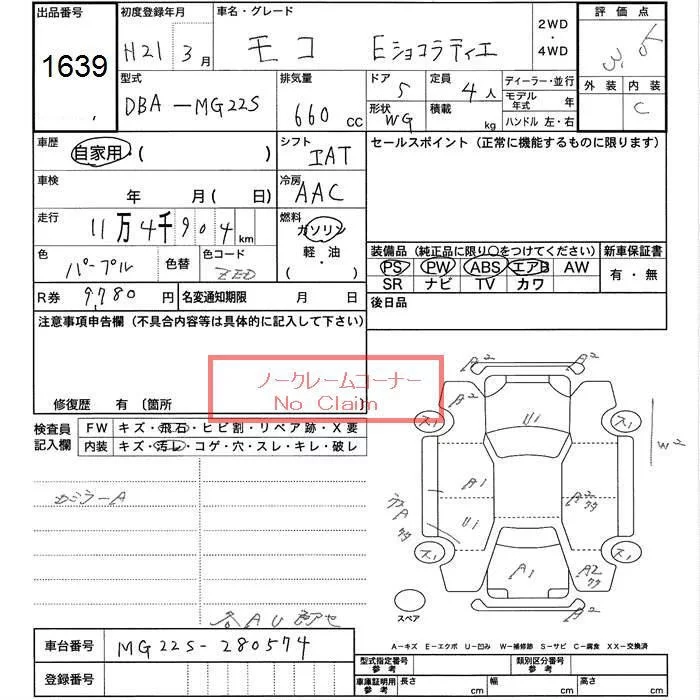 出品番号
1639
初度登録年月
H21 3月
車名・グレード
モコ Eショコラティエ
2WD
・
4WD
評価点
3.5
外装 内装
C
型式
DBA-MG22S
排気量
660cc
ドア
5
定員
4人
形状
WG
積載
kg
ディーラー・並行
モデル年式 年
ハンドル 左・右
車歴
自家用・( )
シフト
IAT
セールスポイント (正常に機能するものに限ります)
車検
年 月(日)
冷房
AAC
走行
11万4千904km
燃料
ガソリン
軽・油
( ・ )
色
パープル
色替
色コード
ZED
装備品 (純正品に限り○をつけてください)
PS PW ABS エアB AW
SR ナビ TV カワ
新車保証書
有・無
R券 9,780円
名変通知期限 月 日
後日品
注意事項申告欄 (不具合内容等は具体的に記入して下さい)
ノークレームコーナー
No Claim
修復歴 有 〔箇所
検査員記入欄
FW キズ・飛石・ヒビ割・リペア跡・X要
内装 キズ・汚レ・コゲ・穴・スレ・キレ・破レ
カミラーA
各AU
A2
A2
A2
U1
ス1
ス1
A1
U1
A2
A1
A2
ス1
ス1
A2
スペア
A-キズ E-エクボ U-凹み W-補修跡 S-サビ C-腐食 XX-交換済
車台番号
MG22S-280574
登録番号
型式指定番号
参考
類別区分番号
参考
車庫証明用
参考
長さ cm
幅 cm
高さ cm